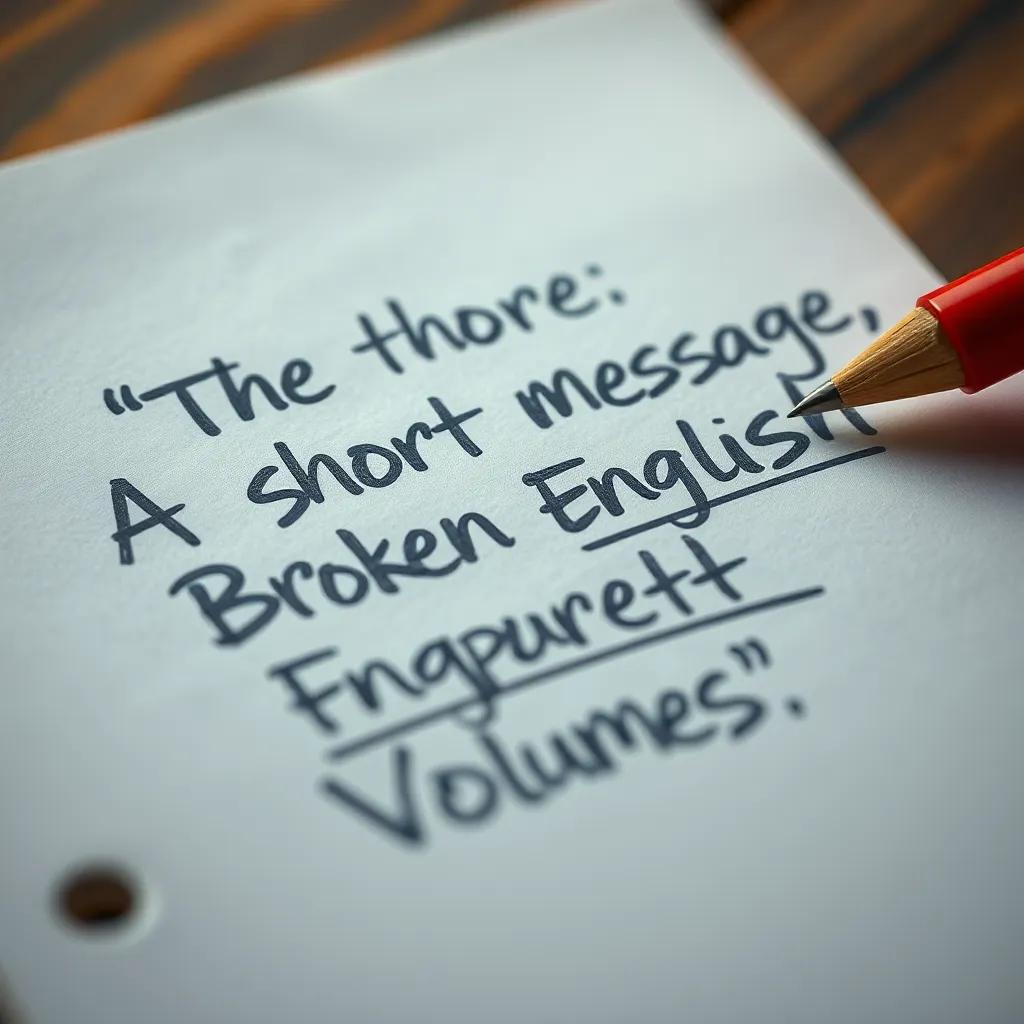 “The thore:
A short message,
Broken English
Fngpurett
Volumes”.